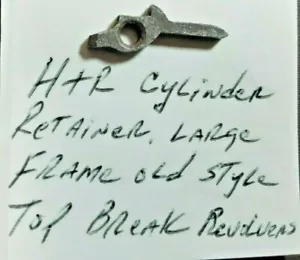 H+R Cylinder
Retainer, Large
Frame old Style
Top Break Revolvers